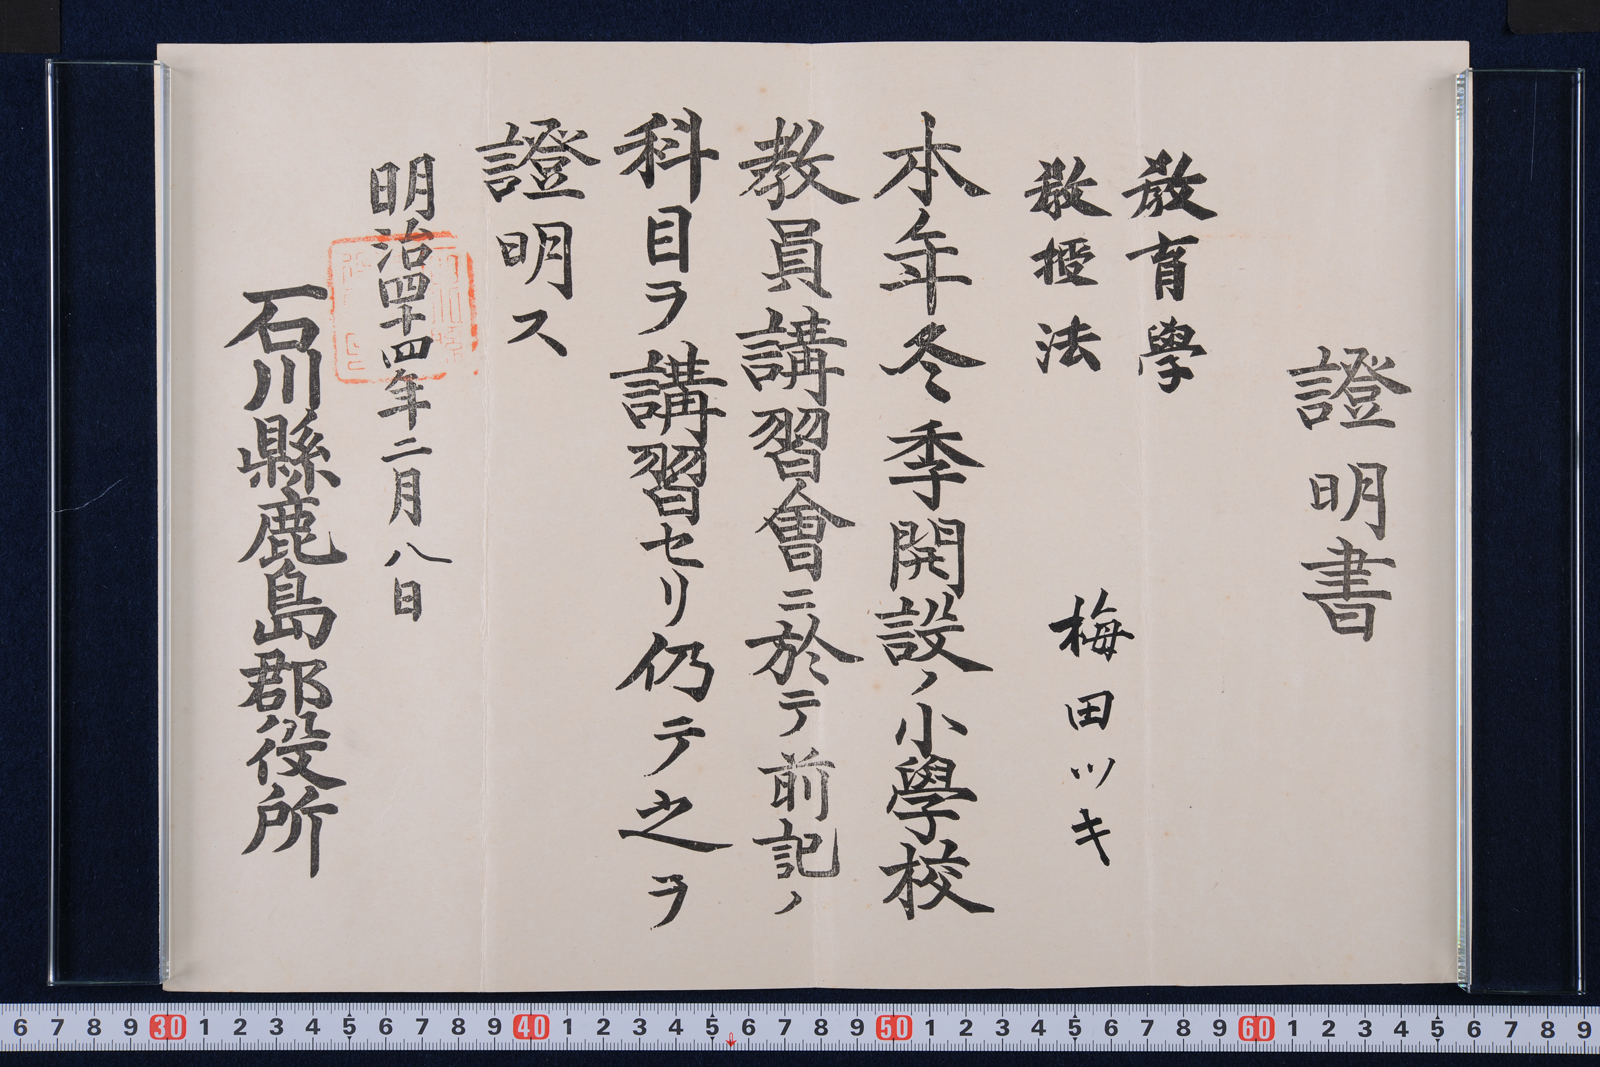 證明書
教育學
教授法
梅田ツキ
本年冬季開設ノ小學校
教員講習會ニ於テ前記ノ
科目ヲ講習セリ仍テ之ヲ
證明ス
明治四十四年二月八日
石川縣鹿島郡役所
6 7 8 9 30 1 2 3 4 5 6 7 8 9 40 1 2 3 4 5 6 7 8 9 50 1 2 3 4 5 6 7 8 9 60 1 2 3 4 5 6 7 8 9